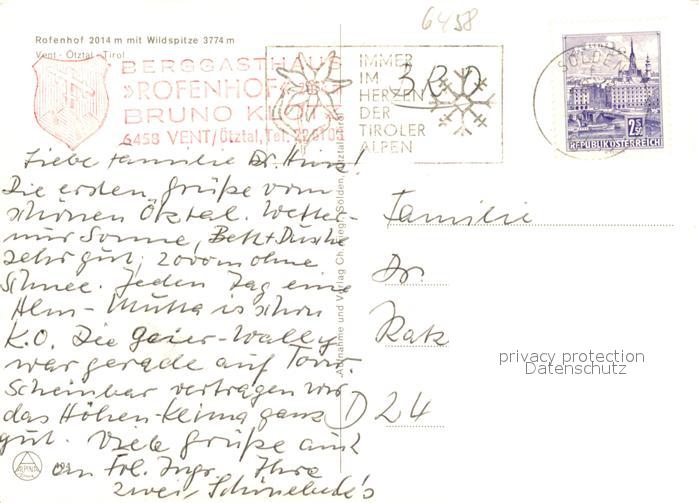 6458
Rofenhof 2014 m mit Wildspitze 3774 m
Vent - Ötztal - Tirol
BERGGASTHAUS
»ROFENHOF«
BRUNO KLOTZ
6458 VENT/Ötztal, Tel.
IMMER
IM
HERZEN
DER
TIROLER
ALPEN
BRD
SÖLDEN
2 S 50
REPUBLIK ÖSTERREICH
Liebe Familie Dr.
Die ersten Grüße vom
schönen Ötztal. Wetter-
nur Sonne, Bett + Dusche
sehr gut, 2000 m ohne
Schnee. Jeden Tag eine
Alm - Mutta is schon
K.O. Die Geier-Wally
war gerade auf Tour.
Scheinbar vertragen wir
das Höhen-Klima ganz
gut. Viele Grüße auch
an Frl. Ingr. Ihre
zwei
Aufnahme und Verlag Ch. Riegl, Sölden, Ötztal, Tirol
ALPINA
Familie
Dr.
Katz
D 24
privacy protection
Datenschutz